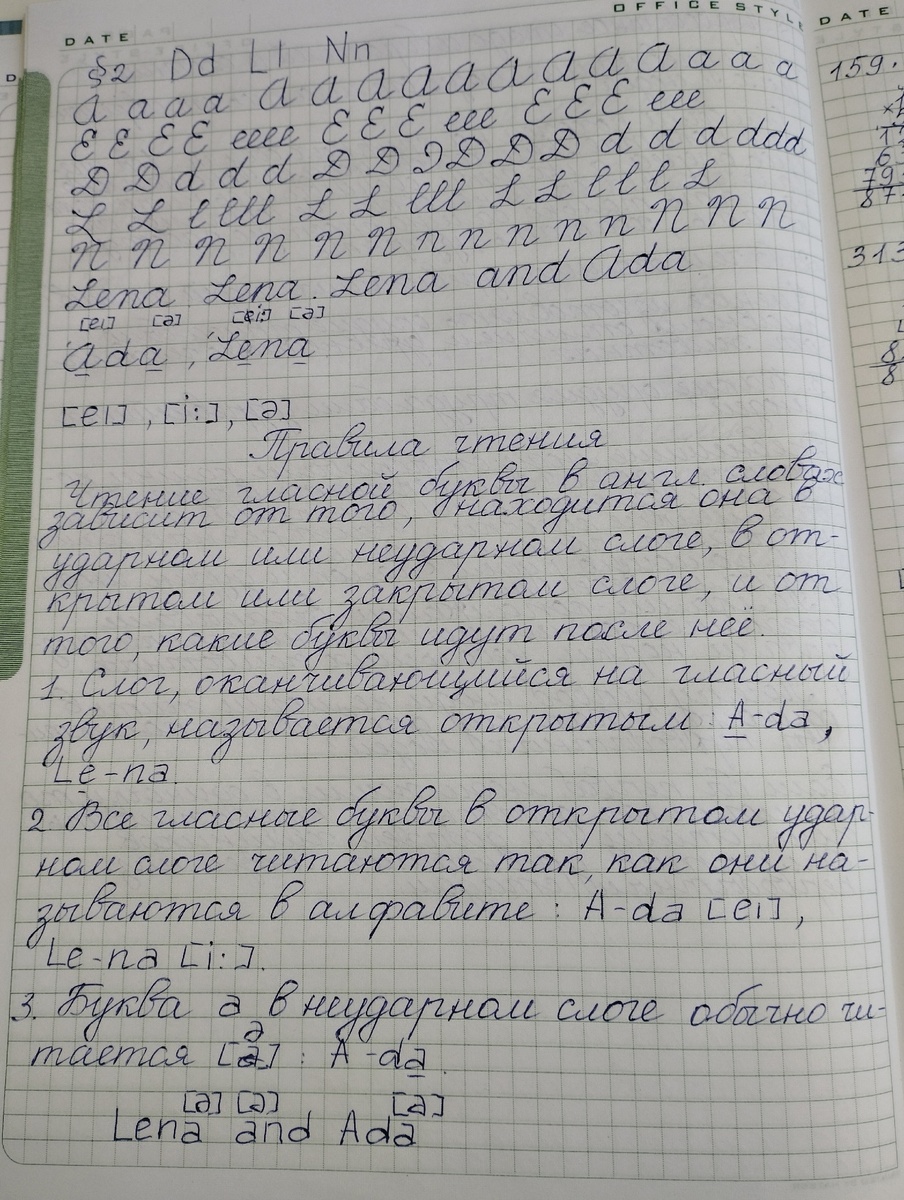 OFFICE STYL
DATE
DATE
§2 Dd Ll Nn
a a a a a a a a a a a a a a a a
E E E E eeee E E E eee E E E eee
D D d d d D D D D D D d d d ddd
L L l lll L L lll L L l l l L
n n n n n n n n n n n n n n
Lena Lena. Lena and Ada
[ei] [ə] [i:] [ə]
'Ada, 'Lena
[ei], [i:], [ə]
Правила чтения
Чтение гласной буквы в англ. словах
зависит от того, находится она в
ударном или неударном слоге, в от-
крытом или закрытом слоге, и от
того, какие буквы идут после неё.
1. Слог, оканчивающийся на гласный
звук, называется открытым: A-da,
Le-na.
2 Все гласные буквы в открытом удар-
ном слоге читаются так, как они на-
зываются в алфавите: A-da [ei],
Le-na [i:].
3. Буква a в неударном слоге обычно чи-
тается [ə]: A-da.
[ə] [ə] [ə]
Lena and Ada
159.
313